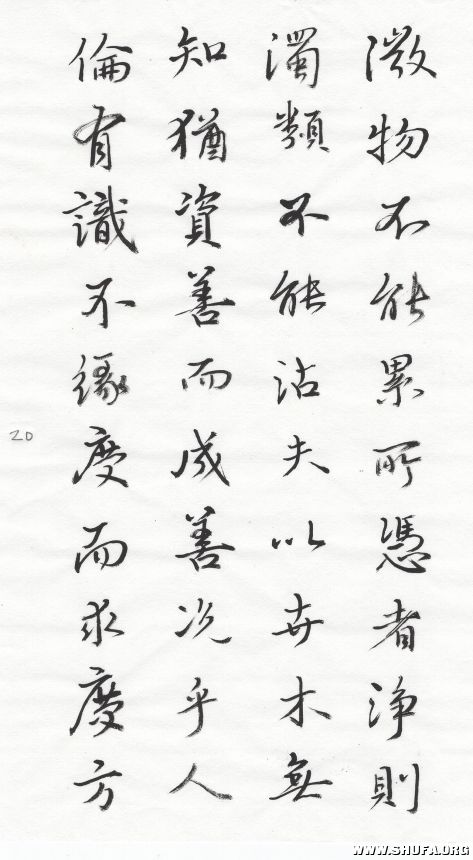 微物不能累所憑者淨則
濁類不能沾夫以卉木無
知猶資善而成善況乎人
倫有識不緣慶而求慶方
20
WWW.SHUFA.ORG